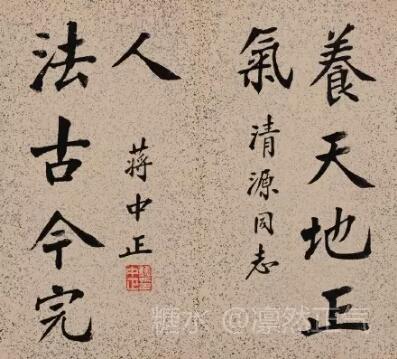 養天地正
氣
清源同志
法古今完
人
蔣中正
糖水 @凛然正气